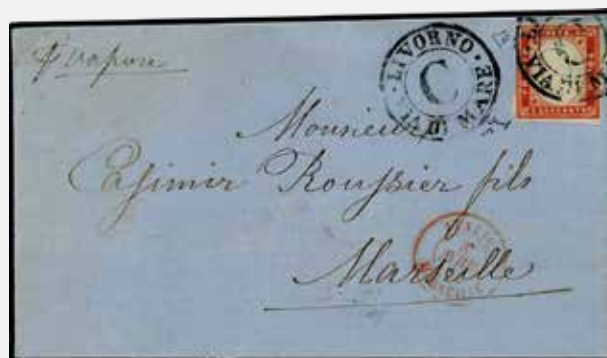 p vapore
LIVORNO
C
VIA DI MARE
Monsieur
Casimir Roussier fils
Marseille